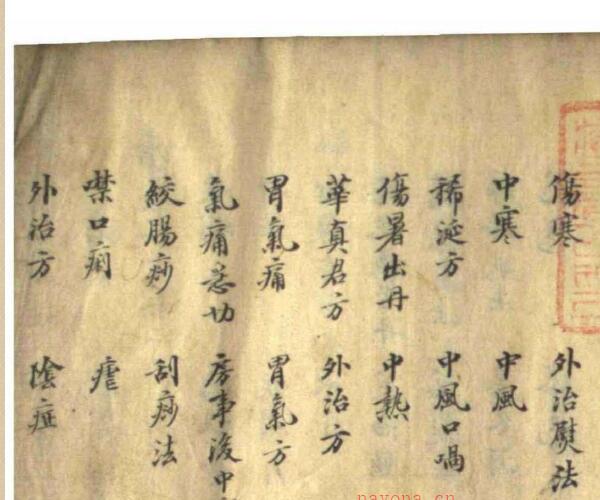 傷寒 外治熨法
中寒 中風
稀涎方 中風口喎
傷暑出丹 中熱
華真君方 外治方
胃氣痛 胃氣方
氣痛 房事後中
絞腸痧 刮痧法
噤口痢 瘧
外治方 陰症
nayona.cn